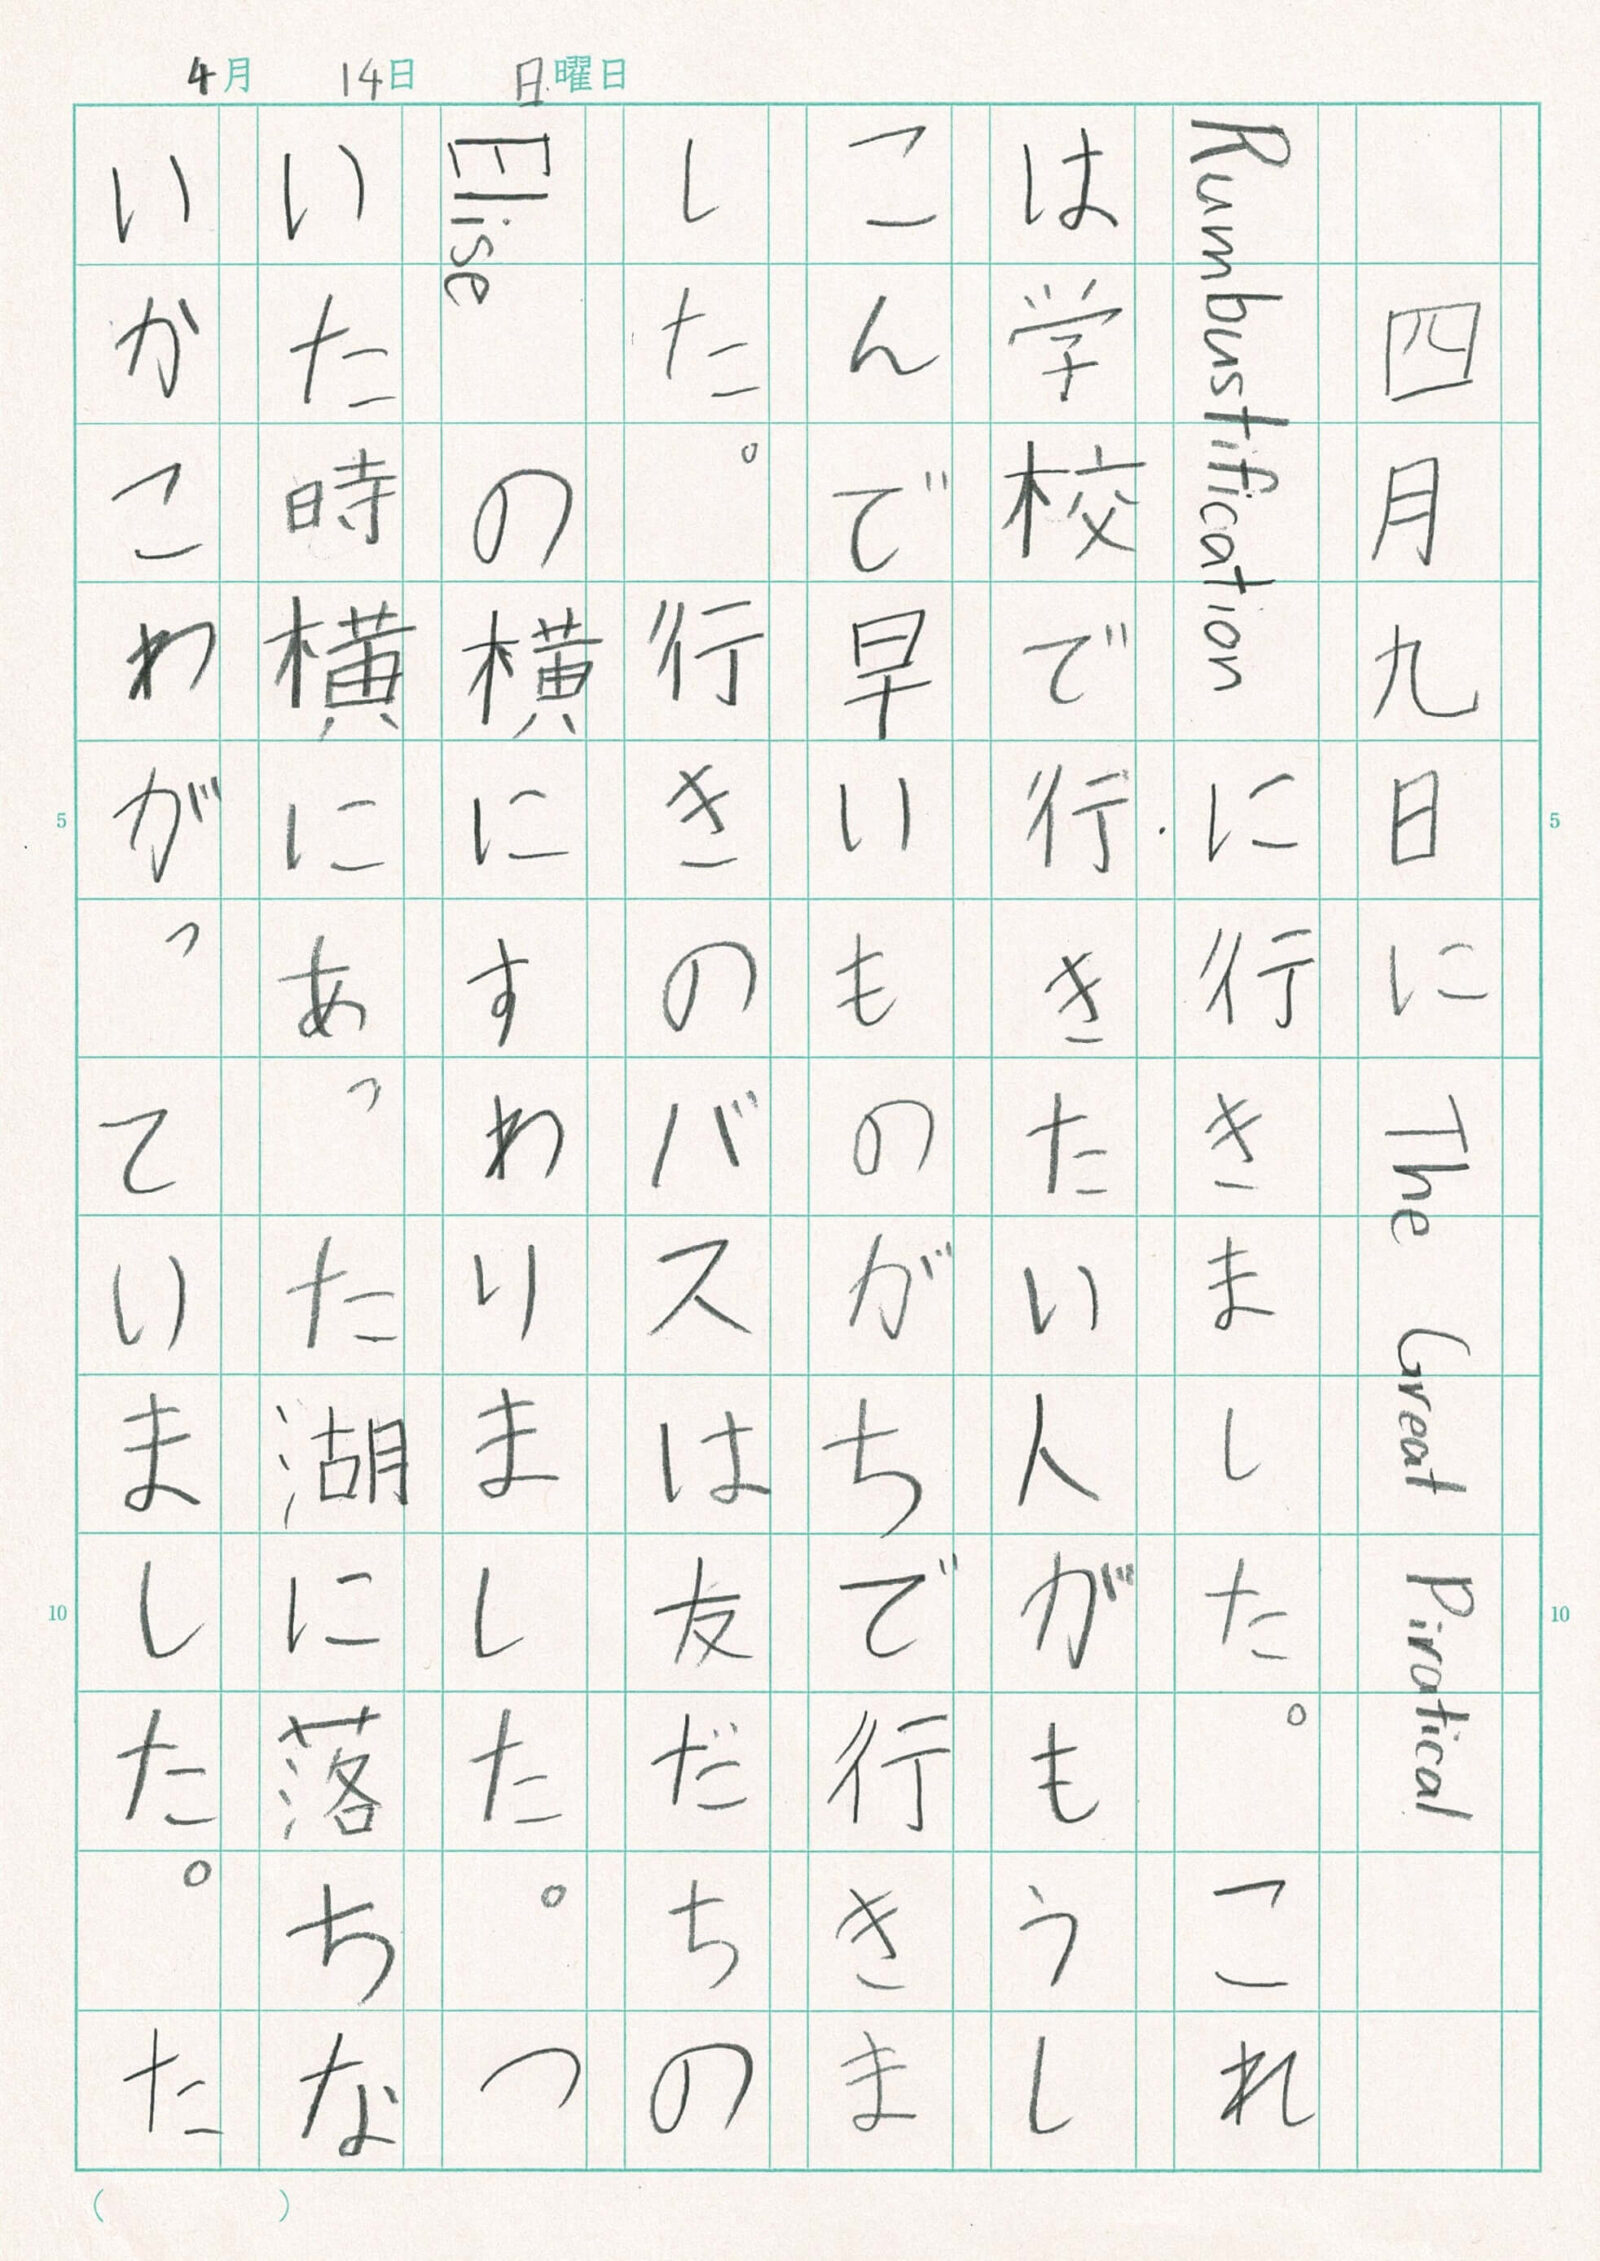 4月 14日 日曜日
四月九日に The Great Piratical
Rumbustificationに行きました。これ
は学校で行きたい人がもうし
こんで早いものがちで行きま
した。行きのバスは友だちの
Eliseの横にすわりました。つ
いた時横にあった湖に落ちな
いかこわがっていました。た
5
10
5
10
( )